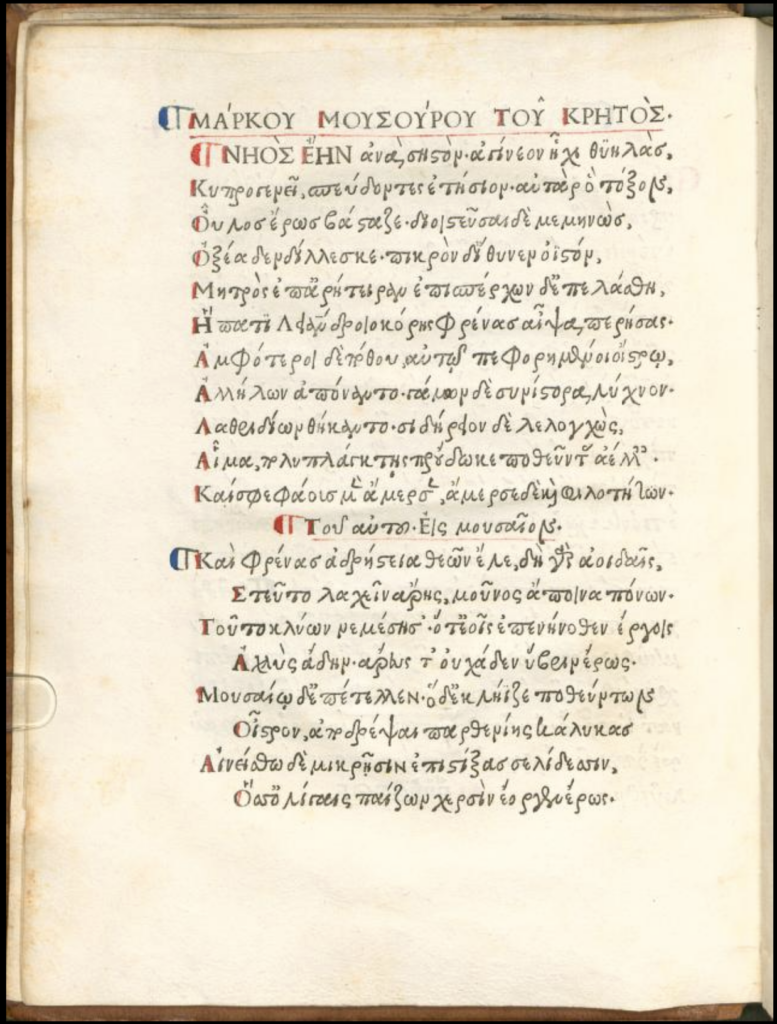 ΜΑΡΚΟΥ ΜΟΥΣΟΥΡΟΥ ΤΟΥ͂ ΚΡΗΤΟΣ.
ΝΗΟΣ ἜΗΝ ἀνὰ σηστὸν. ἀπίνεον ἧχι θυηλὰς,
Κυπρος ἐρεῖ, σπεύδοντες ἐτήσιον. αὐτὰρ ὁ τόξον,
Οὖλος ἔρως βάσταζε. διοϊστεῦσαι δὲ μεμηνὼς,
Ὀξέα δενδίλλεσκε. πικρὸν δ' ἴθυνεν ὀϊστόν,
Μητρὸς ἐπ' ἀρήτειραν ἐπισπέρχων δ' ἐπελάσθη,
Ἥπατι λεάνδροιο κόρης φρένας αἶψα, περήσας.
Ἀμφότεροι δ' αὐτῷ πεφορημένοι οἴστρῳ,
Ἀλλήλων ἀπόναντο. γάμων δὲ συνίστορα, λύχνον.
Λαθριδίων θήκαντο. σιδήρειον δὲ λελογχὼς,
Αἷμα, πολυπλάγκτης προὔδωκε ποθεῦντας ἀέλλαις.
Καί σφε φάους μὲν ἄμερσεν, ἄμερσε δὲ καὶ φιλοτήτων.
Τοῦ αὐτοῦ. Εἰς μουσαῖον.
Καὶ φρένας ἀδρήστεια θεῶν ἕλε, δὴ γὰρ ἀοιδαῖς,
Στεῦτο λαχεῖν ἄρης, μοῦνος ἄποινα πόνων.
Τοῦτο κλύων νεμέσησ'. ὅτ' ἑοῖς ἐπενήνοθεν ἔργοις
Ἄλλος ἄδην. ἄρεως τ' οὐ χάδεν ὕβριν ἔρως.
Μουσαίῳ δ' ἐπέτελλεν. ὁ δὲ κλήϊζε ποθεύντων
Οἶστρον, ἀποδρέψαι παρθενίης κάλυκας
Αἰνείσθω δὲ μικρῇσιν ἐπιστίξας σελίδεσσιν,
Ὅσσ' ὀλίγαις παίζων χερσὶν ἔοργεν ἔρως.